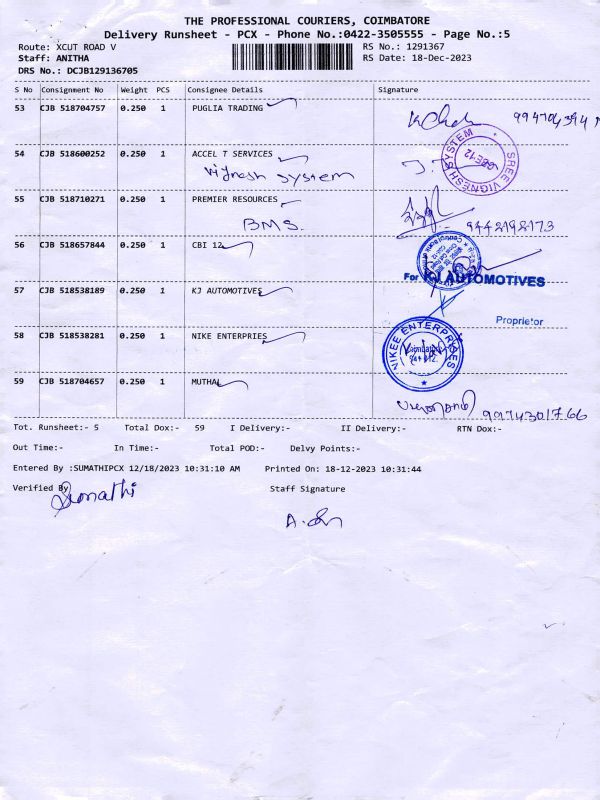 THE PROFESSIONAL COURIERS, COIMBATORE
Delivery Runsheet - PCX - Phone No.:0422-3505555 - Page No.:5
Route: XCUT ROAD V
RS No.: 1291367
Staff: ANITHA
RS Date: 18-Dec-2023
DRS No.: DCJB129136705
S No Consignment No Weight PCS Consignee Details Signature
53 CJB 518704757 0.250 1 PUGLIA TRADING
54 CJB 518600252 0.250 1 ACCEL T SERVICES
Vignesh System
SREE VIGNESH SYSTEM
CBE-12
55 CJB 518710271 0.250 1 PREMIER RESOURCES
BMS.
9442198173
56 CJB 518657844 0.250 1 CBI 12
For KJ AUTOMOTIVES
57 CJB 518538189 0.250 1 KJ AUTOMOTIVES
Proprietor
58 CJB 518538281 0.250 1 NIKE ENTERPRIES
NIKEE ENTERPRISES
59 CJB 518704657 0.250 1 MUTHAL
Tot. Runsheet:- 5 Total Dox:- 59 I Delivery:- II Delivery:- RTN Dox:-
Out Time:- In Time:- Total POD:- Delvy Points:-
Entered By :SUMATHIPCX 12/18/2023 10:31:10 AM Printed On: 18-12-2023 10:31:44
Verified By Staff Signature
Sumathi